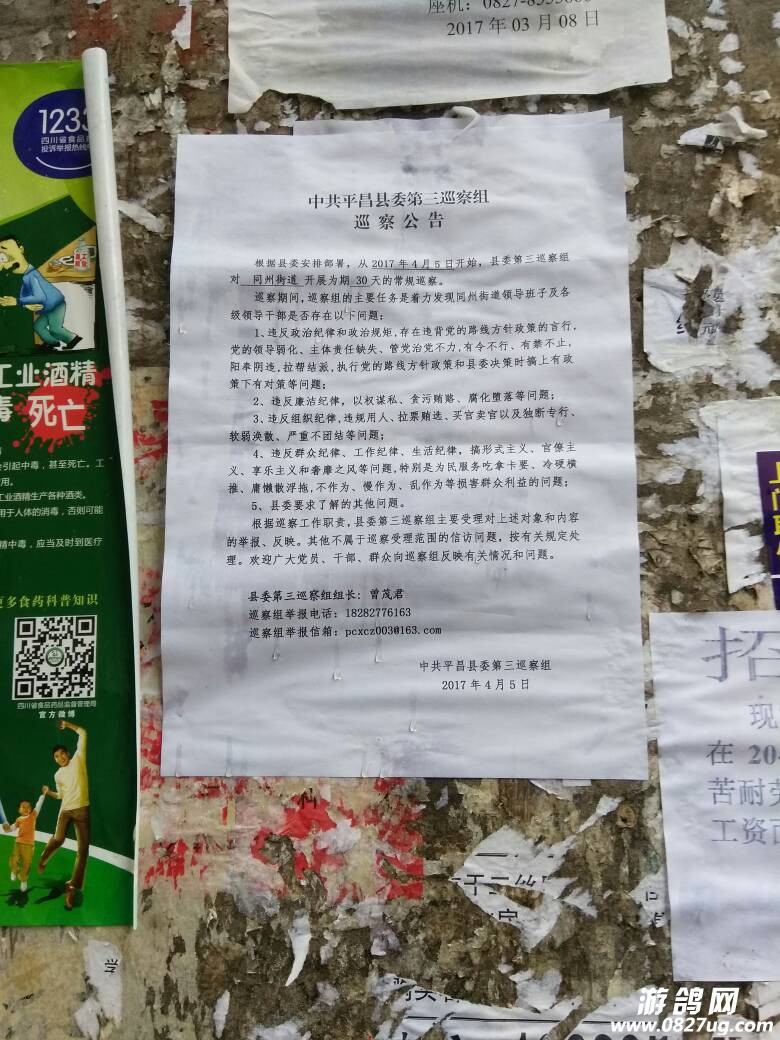 座机：0827-
2017年03月08日
1233
四川省食品
投诉举报热线
中共平昌县委第三巡察组
巡察公告
根据县委安排部署，从2017年4月5日开始，县委第三巡察组
对 同州街道 开展为期 30 天的常规巡察。
巡察期间，巡察组的主要任务是着力发现同州街道领导班子及各
级领导干部是否存在以下问题；
1、违反政治纪律和政治规矩，存在违背党的路线方针政策的言行，
党的领导弱化、主体责任缺失、管党治党不力，有令不行、有禁不止，
阳奉阴违，拉帮结派，执行党的路线方针政策和县委决策时搞上有政
策下有对策等问题；
2、违反廉洁纪律，以权谋私、贪污贿赂、腐化堕落等问题；
3、违反组织纪律，违规用人、拉票贿选、买官卖官以及独断专行、
软弱涣散、严重不团结等问题；
4、违反群众纪律、工作纪律、生活纪律，搞形式主义、官僚主
义、享乐主义和奢靡之风等问题，特别是为民服务吃拿卡要、冷硬横
推、庸懒散浮拖，不作为、慢作为、乱作为等损害群众利益的问题；
5、县委要求了解的其他问题。
根据巡察工作职责，县委第三巡察组主要受理对上述对象和内容
的举报、反映。其他不属于巡察受理范围的信访问题，按有关规定处
理。欢迎广大党员、干部、群众向巡察组反映有关情况和问题。
县委第三巡察组组长：曾茂君
巡察组举报电话：18282776163
巡察组举报信箱：pcxcz003@163.com
中共平昌县委第三巡察组
2017年4月5日
工业酒精
毒 死亡
会引起中毒，甚至死亡。工
用。
工业酒精生产各种酒类。
用于人体的消毒，否则可能
精中毒，应当及时到医疗
更多食药科普知识
四川省食品药品监督管理局
官方微博
招
现
在 20
苦耐劳
工资
学
游鸽网
www.0827ug.com